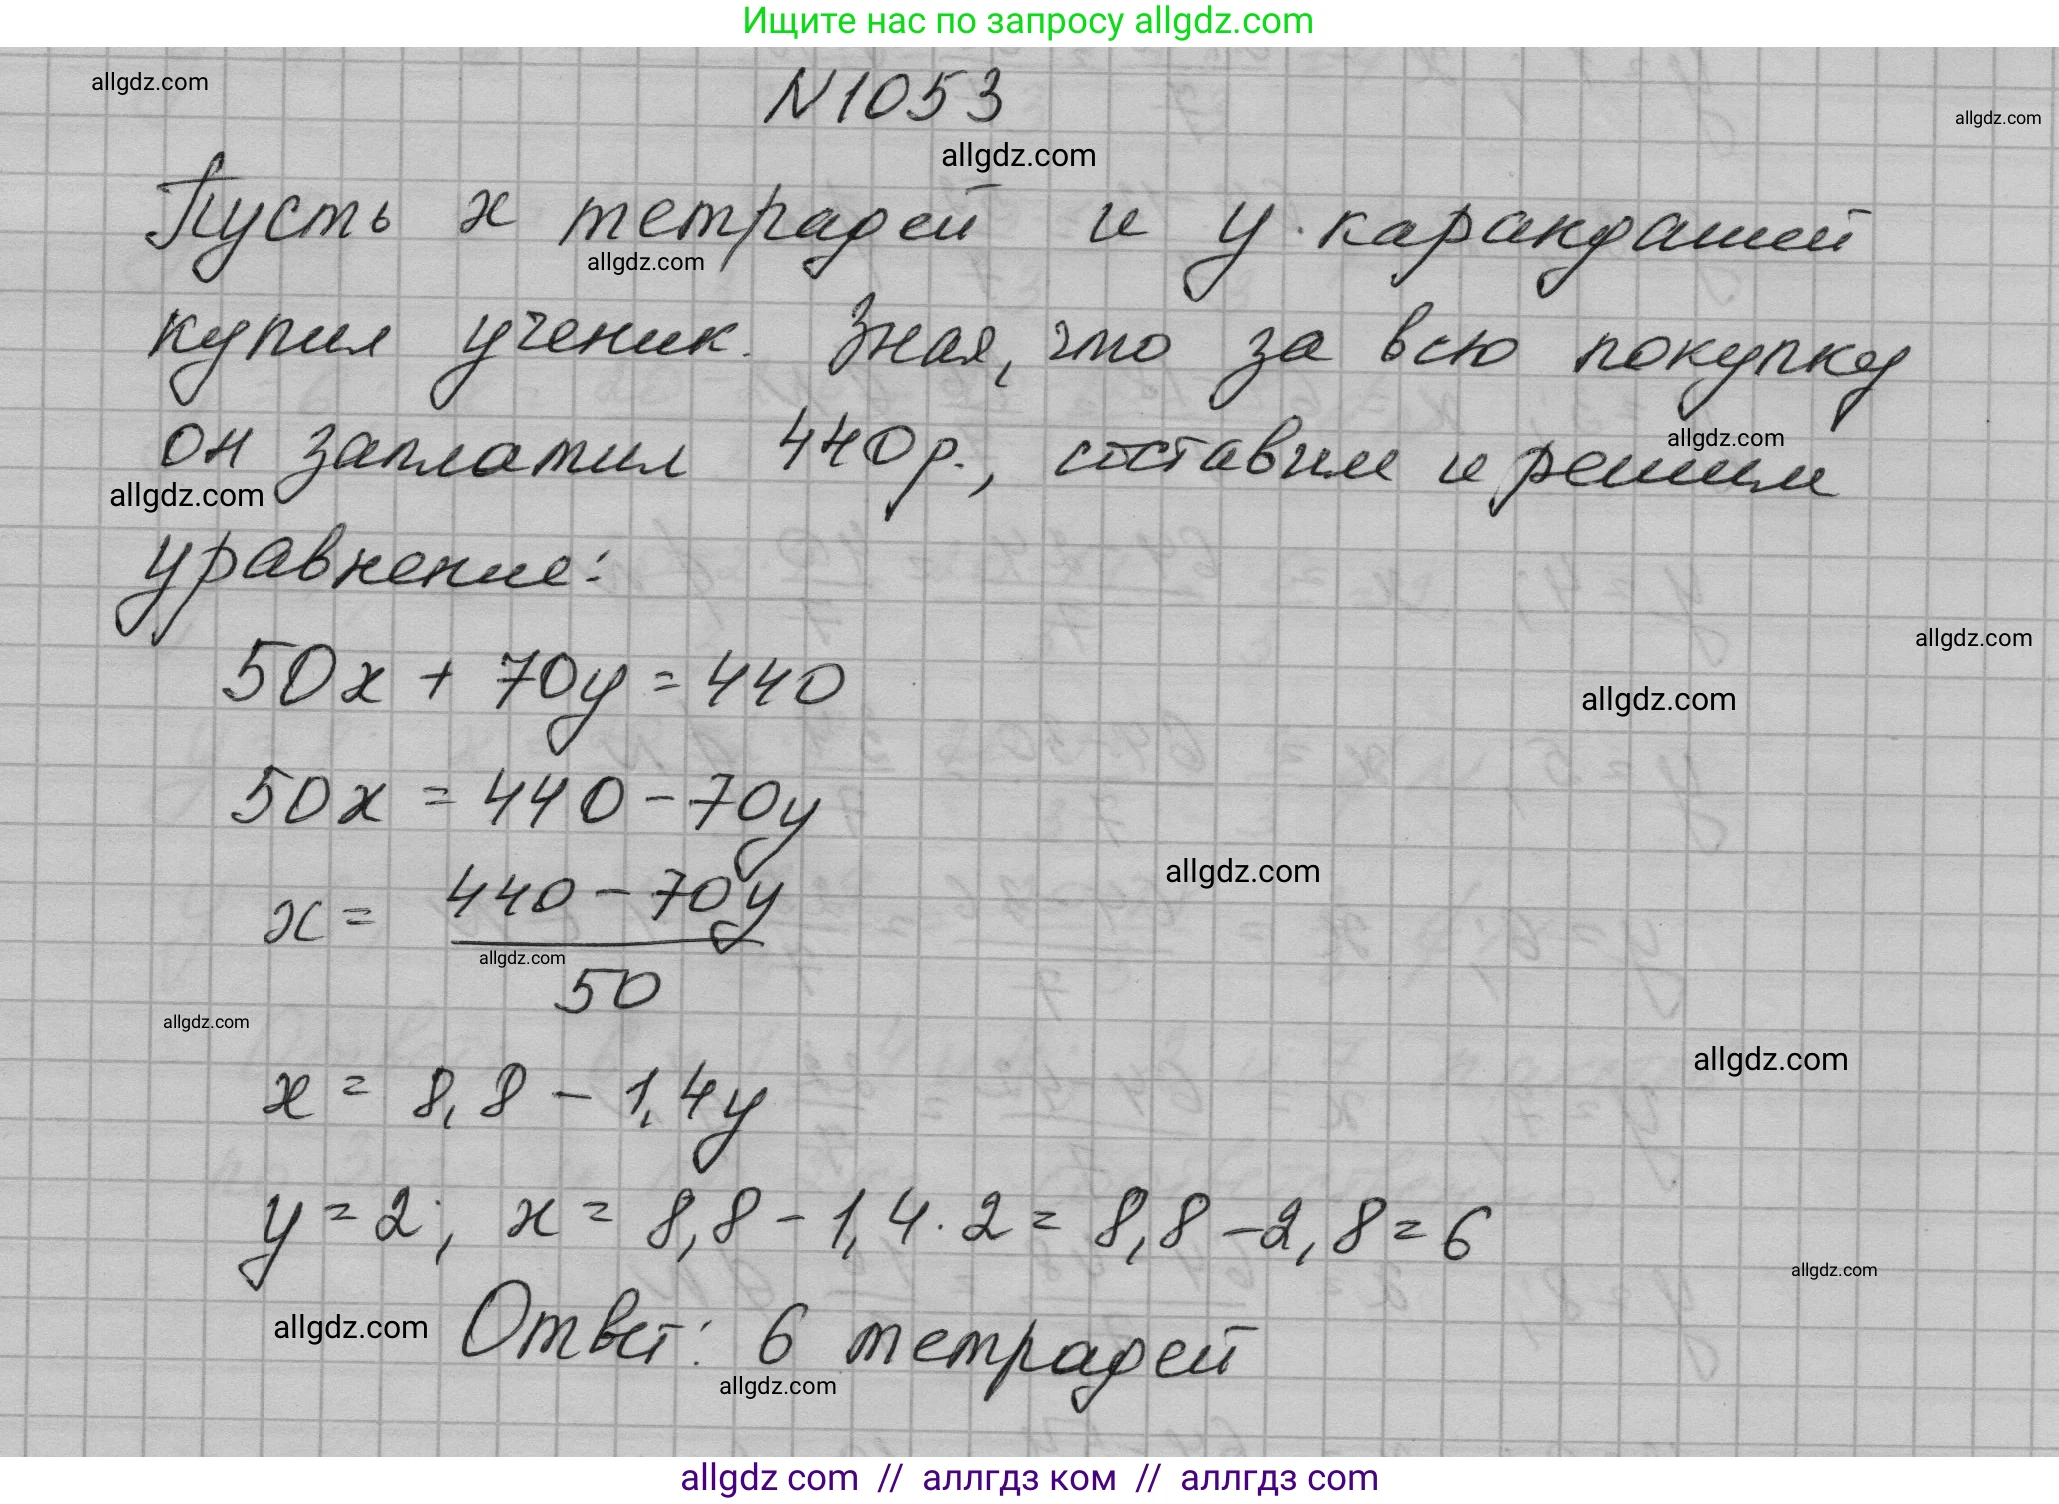 Ищите нас по запросу allgdz.com
allgdz.com
N1053
allgdz.com
allgdz.com
Пусть x тетрадей и y карандашей
allgdz.com
купил ученик. Зная, что за всю покупку
он заплатил 440р., составим и решим
allgdz.com
allgdz.com
уравнение:
allgdz.com
50x + 70y = 440
allgdz.com
50x = 440 - 70y
allgdz.com
x = 440 - 70y
allgdz.com
50
allgdz.com
allgdz.com
x = 8,8 - 1,4y
y = 2; x = 8,8 - 1,4 · 2 = 8,8 - 2,8 = 6
allgdz.com
allgdz.com
Ответ: 6 тетрадей
allgdz.com
allgdz com // аллгдз ком // аллгдз com